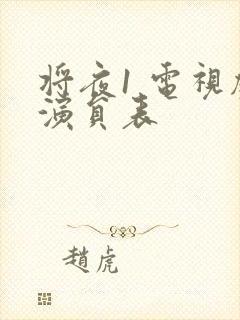 将夜1電視
演員表
趙虎